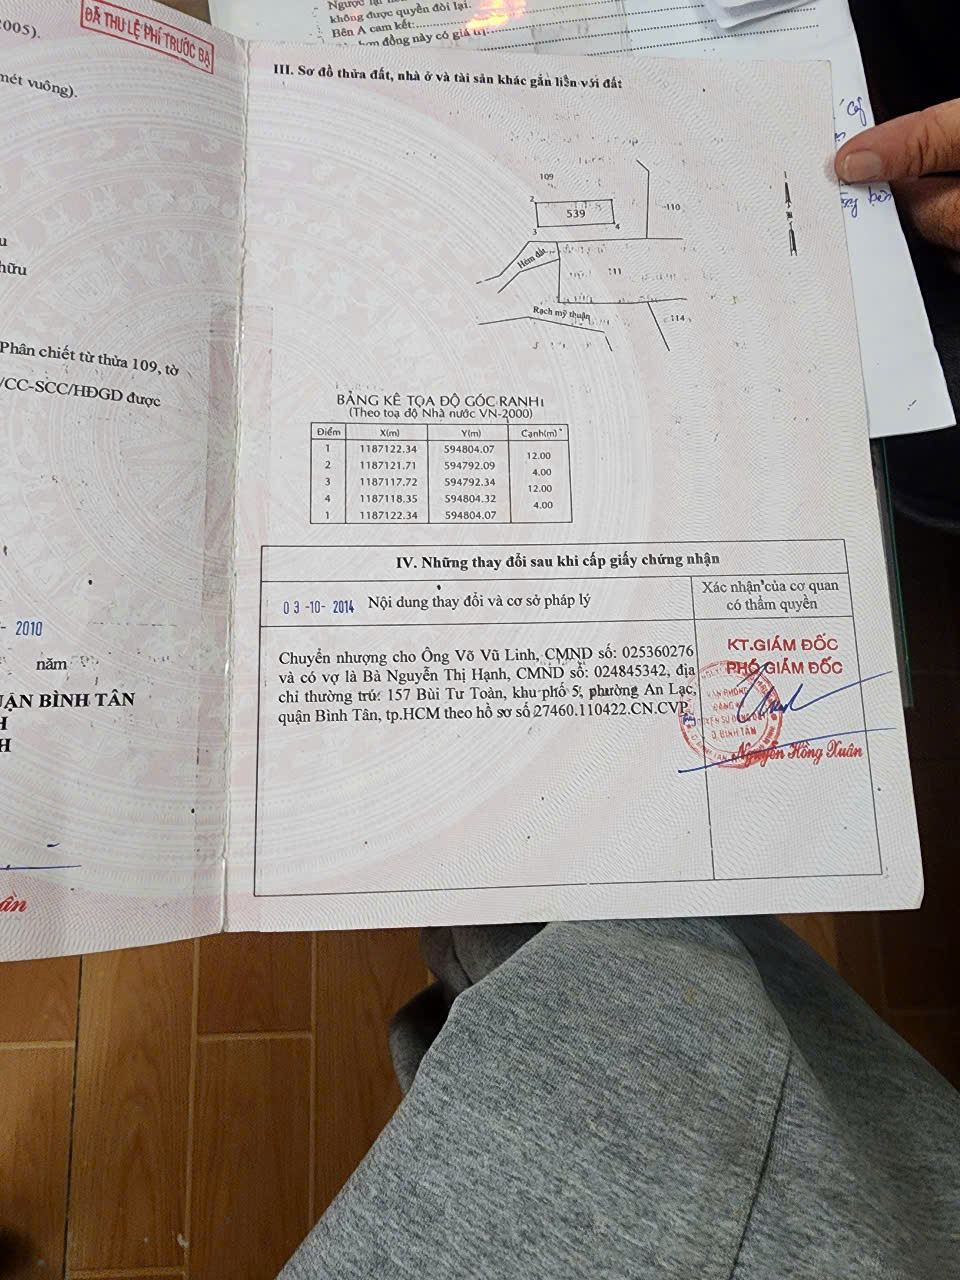 2005).
ĐÃ THU LỆ PHÍ TRƯỚC BẠ
mét vuông).
hữu
Phân chiết từ thửa 109, tờ
/CC-SCC/HĐGD được
- 2010
năm
UẬN BÌNH TÂN
H
H
không được quyền đòi lại.
Bên A cam kết:
đồng này có giá trị
III. Sơ đồ thửa đất, nhà ở và tài sản khác gắn liền với đất
109
2
539
3
4
110
Hẻm đất
111
Rạch mỹ thuận
114
BẢNG KÊ TỌA ĐỘ GÓC RANH
(Theo toạ độ Nhà nước VN-2000)
Điểm X(m) Y(m) Cạnh(m)
1 1187122.34 594804.07
12.00
2 1187121.71 594792.09
4.00
3 1187117.72 594792.34
12.00
4 1187118.35 594804.32
4.00
1 1187122.34 594804.07
IV. Những thay đổi sau khi cấp giấy chứng nhận
03-10-2014 Nội dung thay đổi và cơ sở pháp lý
Xác nhận của cơ quan
có thẩm quyền
Chuyển nhượng cho Ông Võ Vũ Linh, CMND số: 025360276
và có vợ là Bà Nguyễn Thị Hạnh, CMND số: 024845342, địa
chỉ thường trú: 157 Bùi Tư Toàn, khu phố 5, phường An Lạc,
quận Bình Tân, tp.HCM theo hồ sơ số 27460.110422.CN.CVP
KT.GIÁM ĐỐC
PHÓ GIÁM ĐỐC
VĂN PHÒNG
ĐĂNG KÝ
Q.BÌNH TÂN
Nguyễn Hồng Xuân